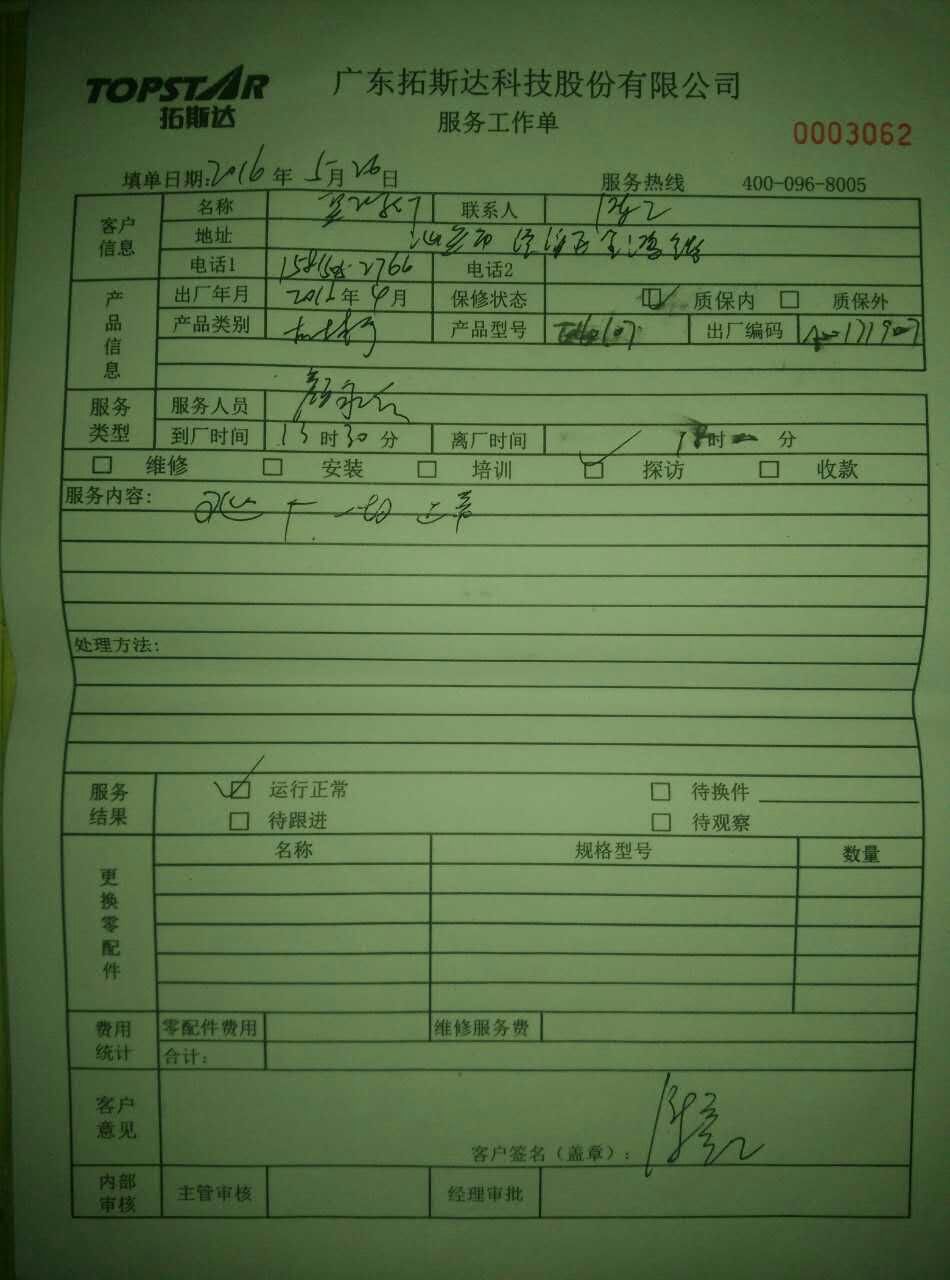 TOPSTAR
拓斯达
广东拓斯达科技股份有限公司
服务工作单
0003062
填单日期:2016年5月26日 服务热线 400-096-8005
客户信息
名称 联系人
地址
电话1 电话2
产品信息
出厂年月 2016年4月 保修状态 质保内 质保外
产品类别 产品型号 出厂编码
服务类型
服务人员
到厂时间 13时30分 离厂时间 18时 分
维修 安装 培训 探访 收款
服务内容: 一切正常
处理方法:
服务结果
运行正常 待换件
待跟进 待观察
更换零配件
名称 规格型号 数量
费用统计
零配件费用 维修服务费
合计:
客户意见
客户签名(盖章):
内部审核
主管审核 经理审批